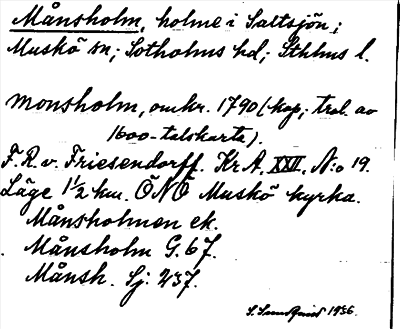 Månsholm, holme i Saltsjön;
Muskö sn; Sotholms hd; Sthlms l.
Monsholm, omkr. 1790 (kop; trol. av
1600-talskarta).
F. R. v. Friesendorff. Kr A, XXII, N:o 19.
Läge 1 1/2 km. ÖNÖ Muskö kyrka.
Månsholmen ek.
Månsholm G. 67.
Månsh. Sj: 237.
1956